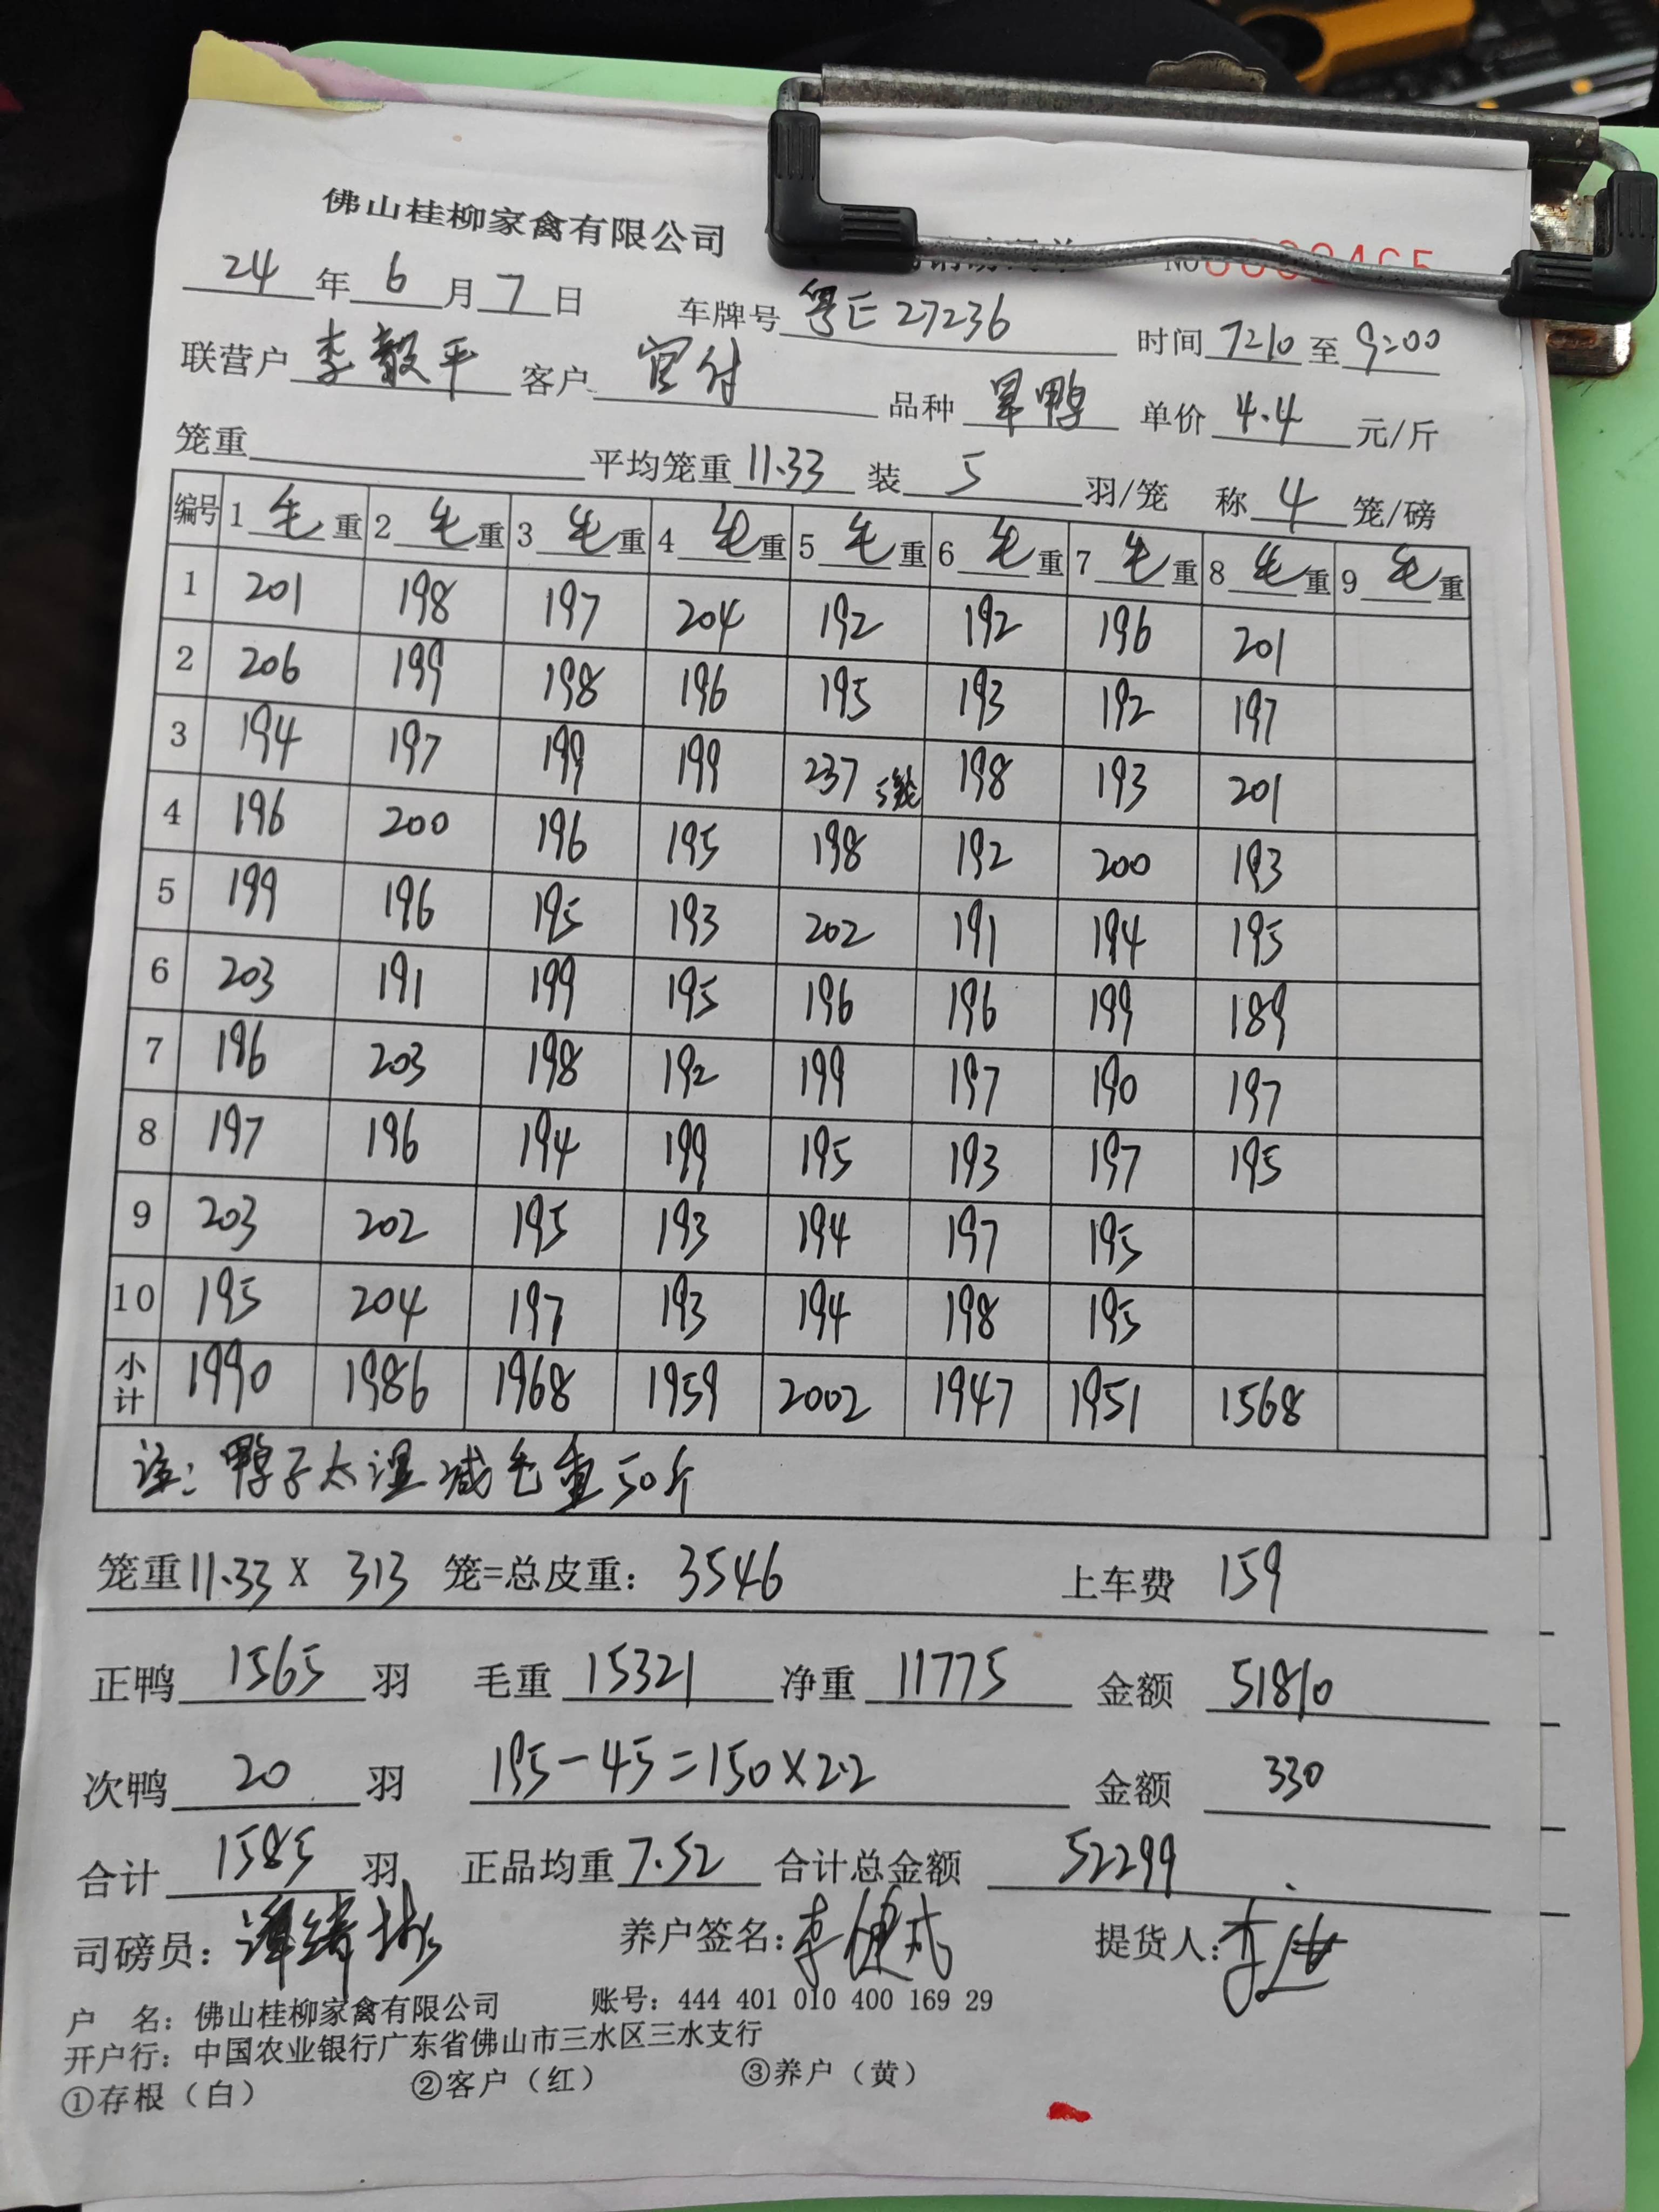 佛山桂柳家禽有限公司 NO
24年6月7日 车牌号 粤E27236 时间 7:10 至 9:00
联营户 李毅平 客户 官付 品种 旱鸭 单价 4.4 元/斤
笼重 平均笼重 11.33 装 5 羽/笼 称 4 笼/磅
编号 1毛重 2毛重 3毛重 4毛重 5毛重 6毛重 7毛重 8毛重 9毛重
1 201 198 197 204 192 192 196 201
2 206 199 198 196 195 193 192 197
3 194 197 199 199 237 5笼 198 193 201
4 196 200 196 195 198 192 200 193
5 199 196 195 193 202 191 194 195
6 203 191 199 195 196 196 199 189
7 196 203 198 192 199 197 190 197
8 197 196 194 199 195 193 197 195
9 203 202 195 193 194 197 195
10 195 204 197 193 194 198 195
小计 1990 1986 1968 1959 2002 1947 1951 1568
注:鸭子太湿减毛重50斤
笼重11.33 X 313 笼=总皮重: 3546 上车费 159
正鸭 1565 羽 毛重 15321 净重 11775 金额 51810
次鸭 20 羽 195-45=150×2.2 金额 330
合计 1585 羽 正品均重 7.52 合计总金额 52299
司磅员: 养户签名: 提货人:
户 名:佛山桂柳家禽有限公司 账号:444 401 010 400 169 29
开户行:中国农业银行广东省佛山市三水区三水支行
①存根(白) ②客户(红) ③养户(黄)